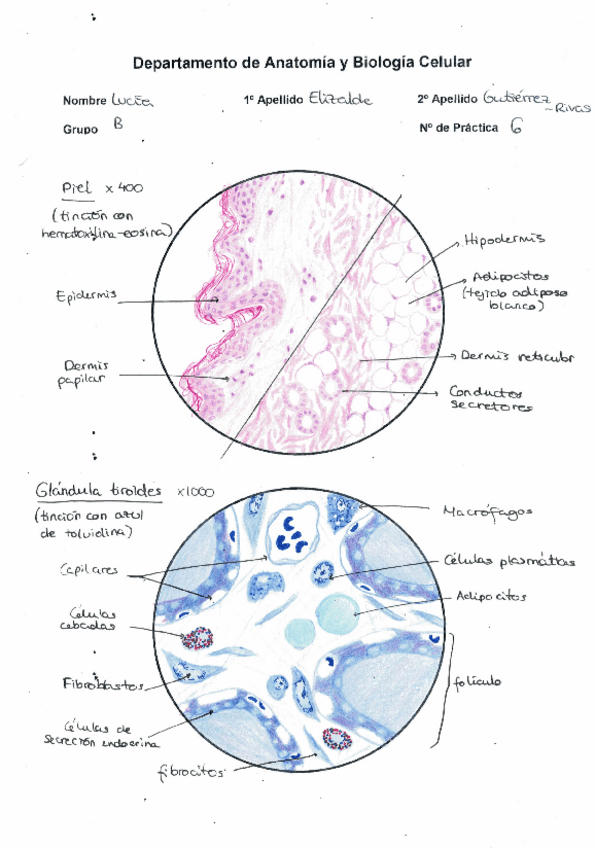 Departamento de Anatomía y Biología Celular
Nombre Lucía 1º Apellido Elizalde 2º Apellido Gutiérrez
-Rivas
Grupo B Nº de Práctica 6
Piel x 400
(tinción con
hematoxilina-eosina)
Hipodermis
Adipocitos
(tejido adiposo
blanco)
Epidermis
Dermis reticular
Dermis
papilar
Conductos
secretores
Glándula tiroides x1000
(tinción con azul
de toluidina)
Macrófagos
Capilares
Células plasmáticas
Adipocitos
Células
cebadas
Fibroblastos
folículo
Células de
secreción endocrina
fibrocitos